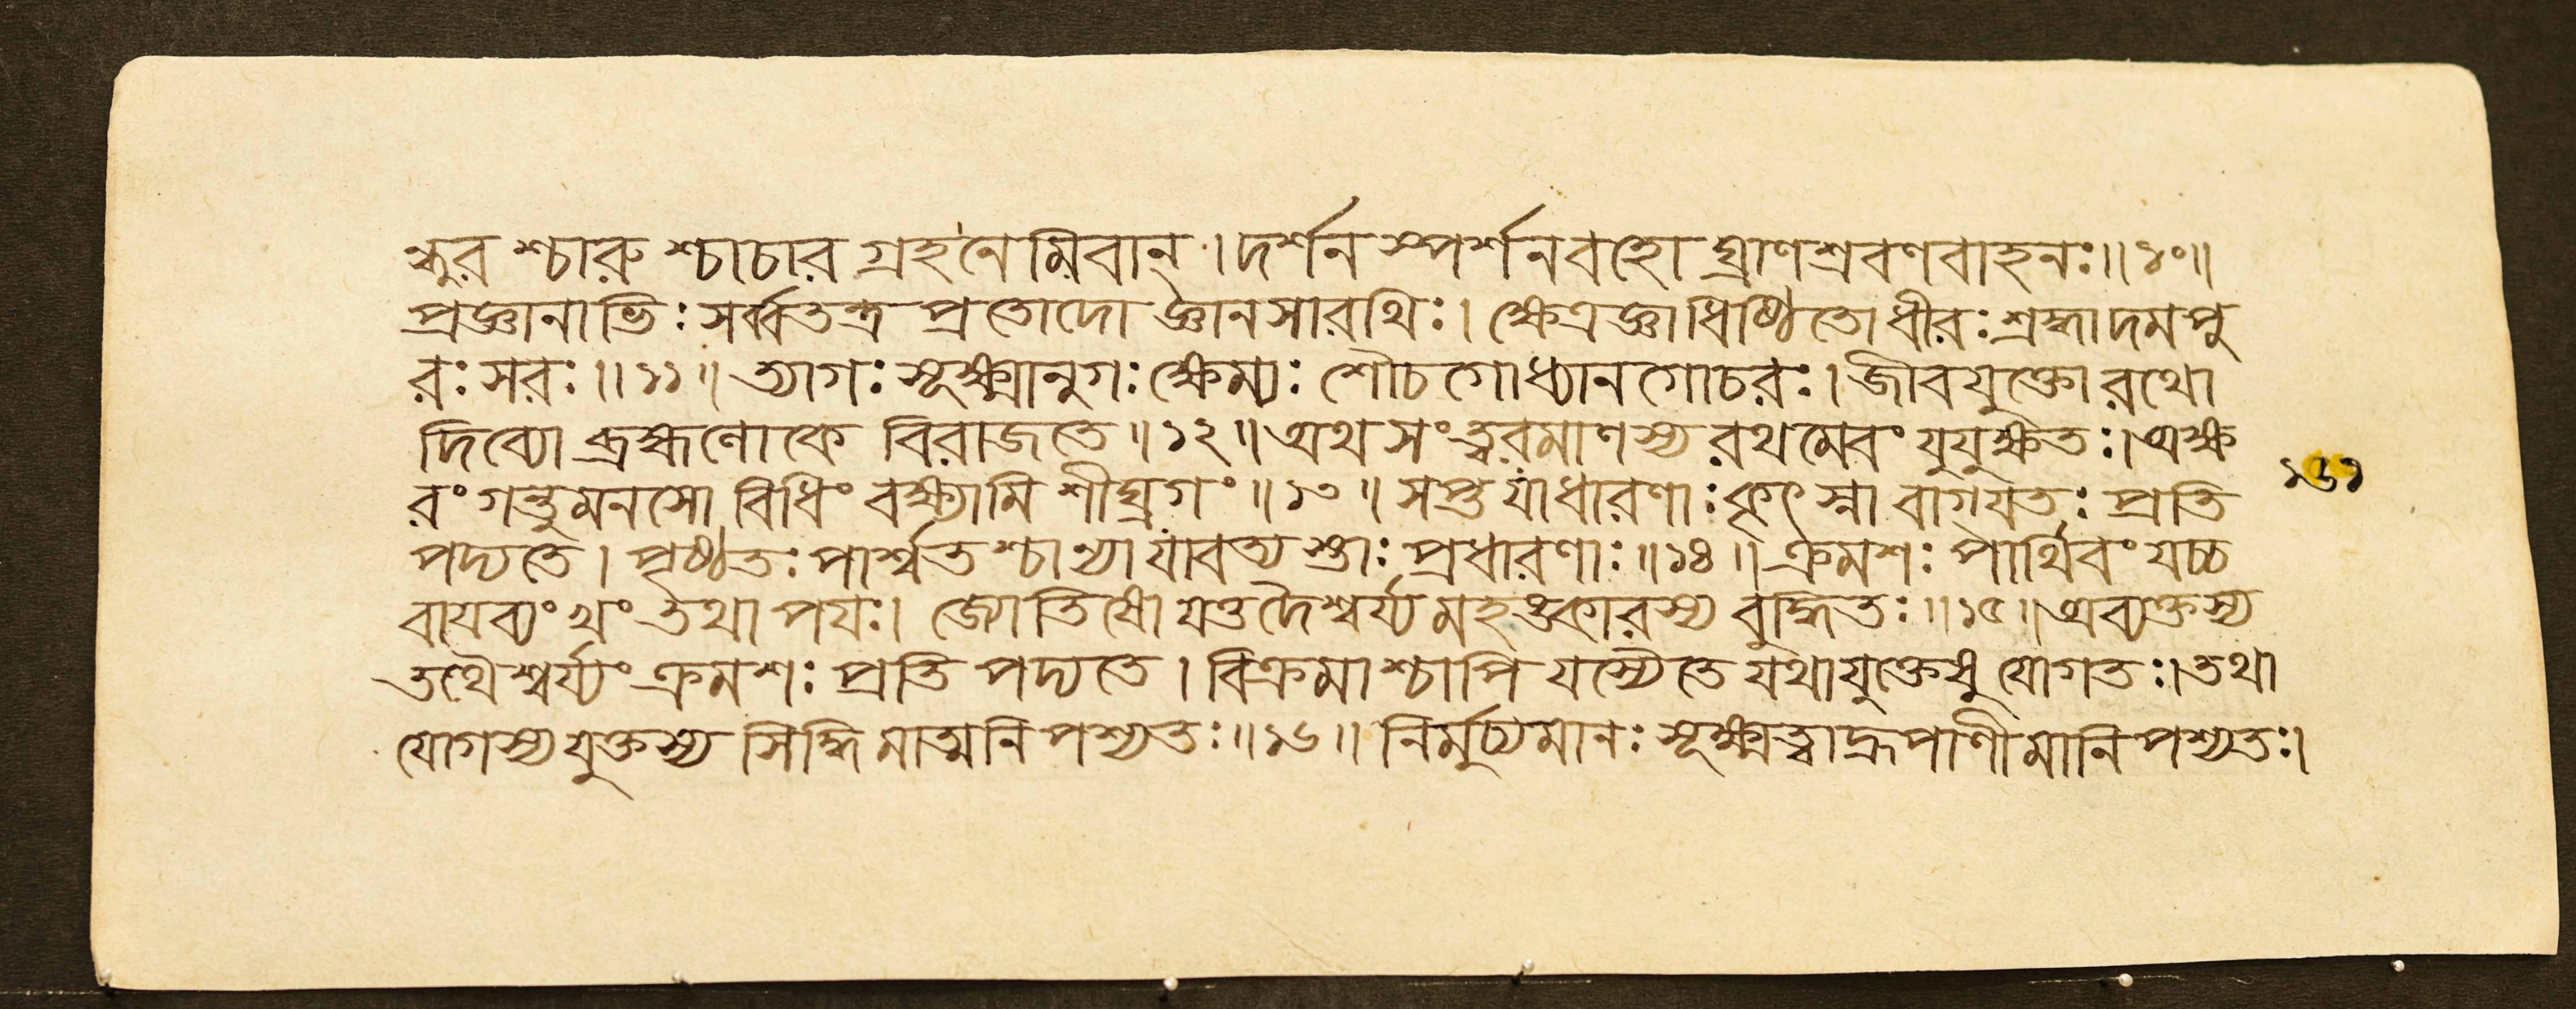 ন্ধুর শ্চারু শ্চাচার গ্রহনেমিবান্ । দর্শন স্পর্শনবহো ঘ্রাণশ্রবণবাহনঃ॥ ১০॥
প্রজ্ঞানাভিঃ সর্ব্বতন্ত্র প্রতোদো জ্ঞানসারথিঃ। ক্ষেত্রজ্ঞাধিষ্ঠিতো ধীরঃ শ্রদ্ধাদমপু
রঃ সরঃ ॥ ১১ ॥ ত্যাগঃ সূক্ষ্মানুগঃ ক্ষেম্যঃ শৌচগোধ্যানগোচরঃ। জীবযুক্তো রথো
দিব্যো ব্রহ্মণোকে বিরাজতে ॥ ১২ ॥ অথ সংত্বরমাণস্য রথমেবং যুযুক্ষতঃ। অক্ষ
রং গন্তুমনসো বিধিং বক্ষ্যামি শীঘ্রগং ॥ ১৩ ॥ সপ্ত যাধারণাঃ কৃৎস্না বাগ্যতঃ প্রতি
পদ্যতে। পৃষ্ঠতঃ পার্শ্বতশ্চান্যা যাবত্যস্তাঃ প্রধারণাঃ ॥ ১৪ ॥ ক্রমশঃ পার্থিবং যচ্চ
বায়ব্যং খং তথা পয়ঃ। জ্যোতিষো যত্তদৈশ্বর্য্যমহঙ্কারস্য বুদ্ধিতঃ ॥ ১৫ ॥ অব্যক্তস্য
তথৈশ্বর্য্যং ক্রমশঃ প্রতিপদ্যতে । বিক্রমাশ্চাপি যস্যৈতে যথাযুক্তেষু যোগতঃ। তথা
যোগস্য যুক্তস্য সিদ্ধিমাত্মনি পশ্যতঃ॥ ১৬॥ নির্মুচ্যমানঃ সূক্ষ্মত্বাদ্রূপাণীমানি পশ্যতঃ।